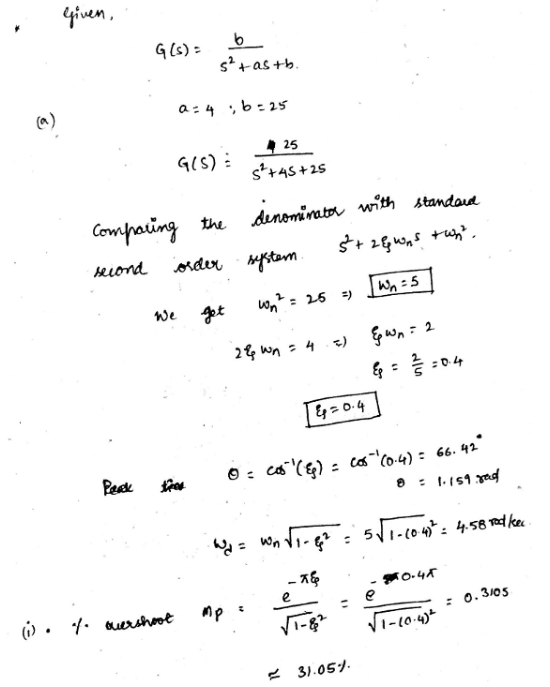 * Given,
G(s) = b / s² + as + b.
a = 4 ; b = 25
(a)
G(s) = 25 / s² + 4s + 25
Comparing the denominator with standard
second order system s² + 2ξωₙs + ωₙ².
We get ωₙ² = 25 ⇒ Wₙ = 5
2ξωₙ = 4 ⇒ ξωₙ = 2
ξ = 2/5 = 0.4
ξ = 0.4
Peak time θ = cos⁻¹(ξ) = cos⁻¹(0.4) = 66.42°
θ = 1.159 rad
ω_d = ωₙ √1-ξ² = 5 √1-(0.4)² = 4.58 rad/sec
(i) . % overshoot Mp = e^-πξ / √1-ξ² = e^-0.4π / √1-(0.4)² = 0.3105
≃ 31.05%